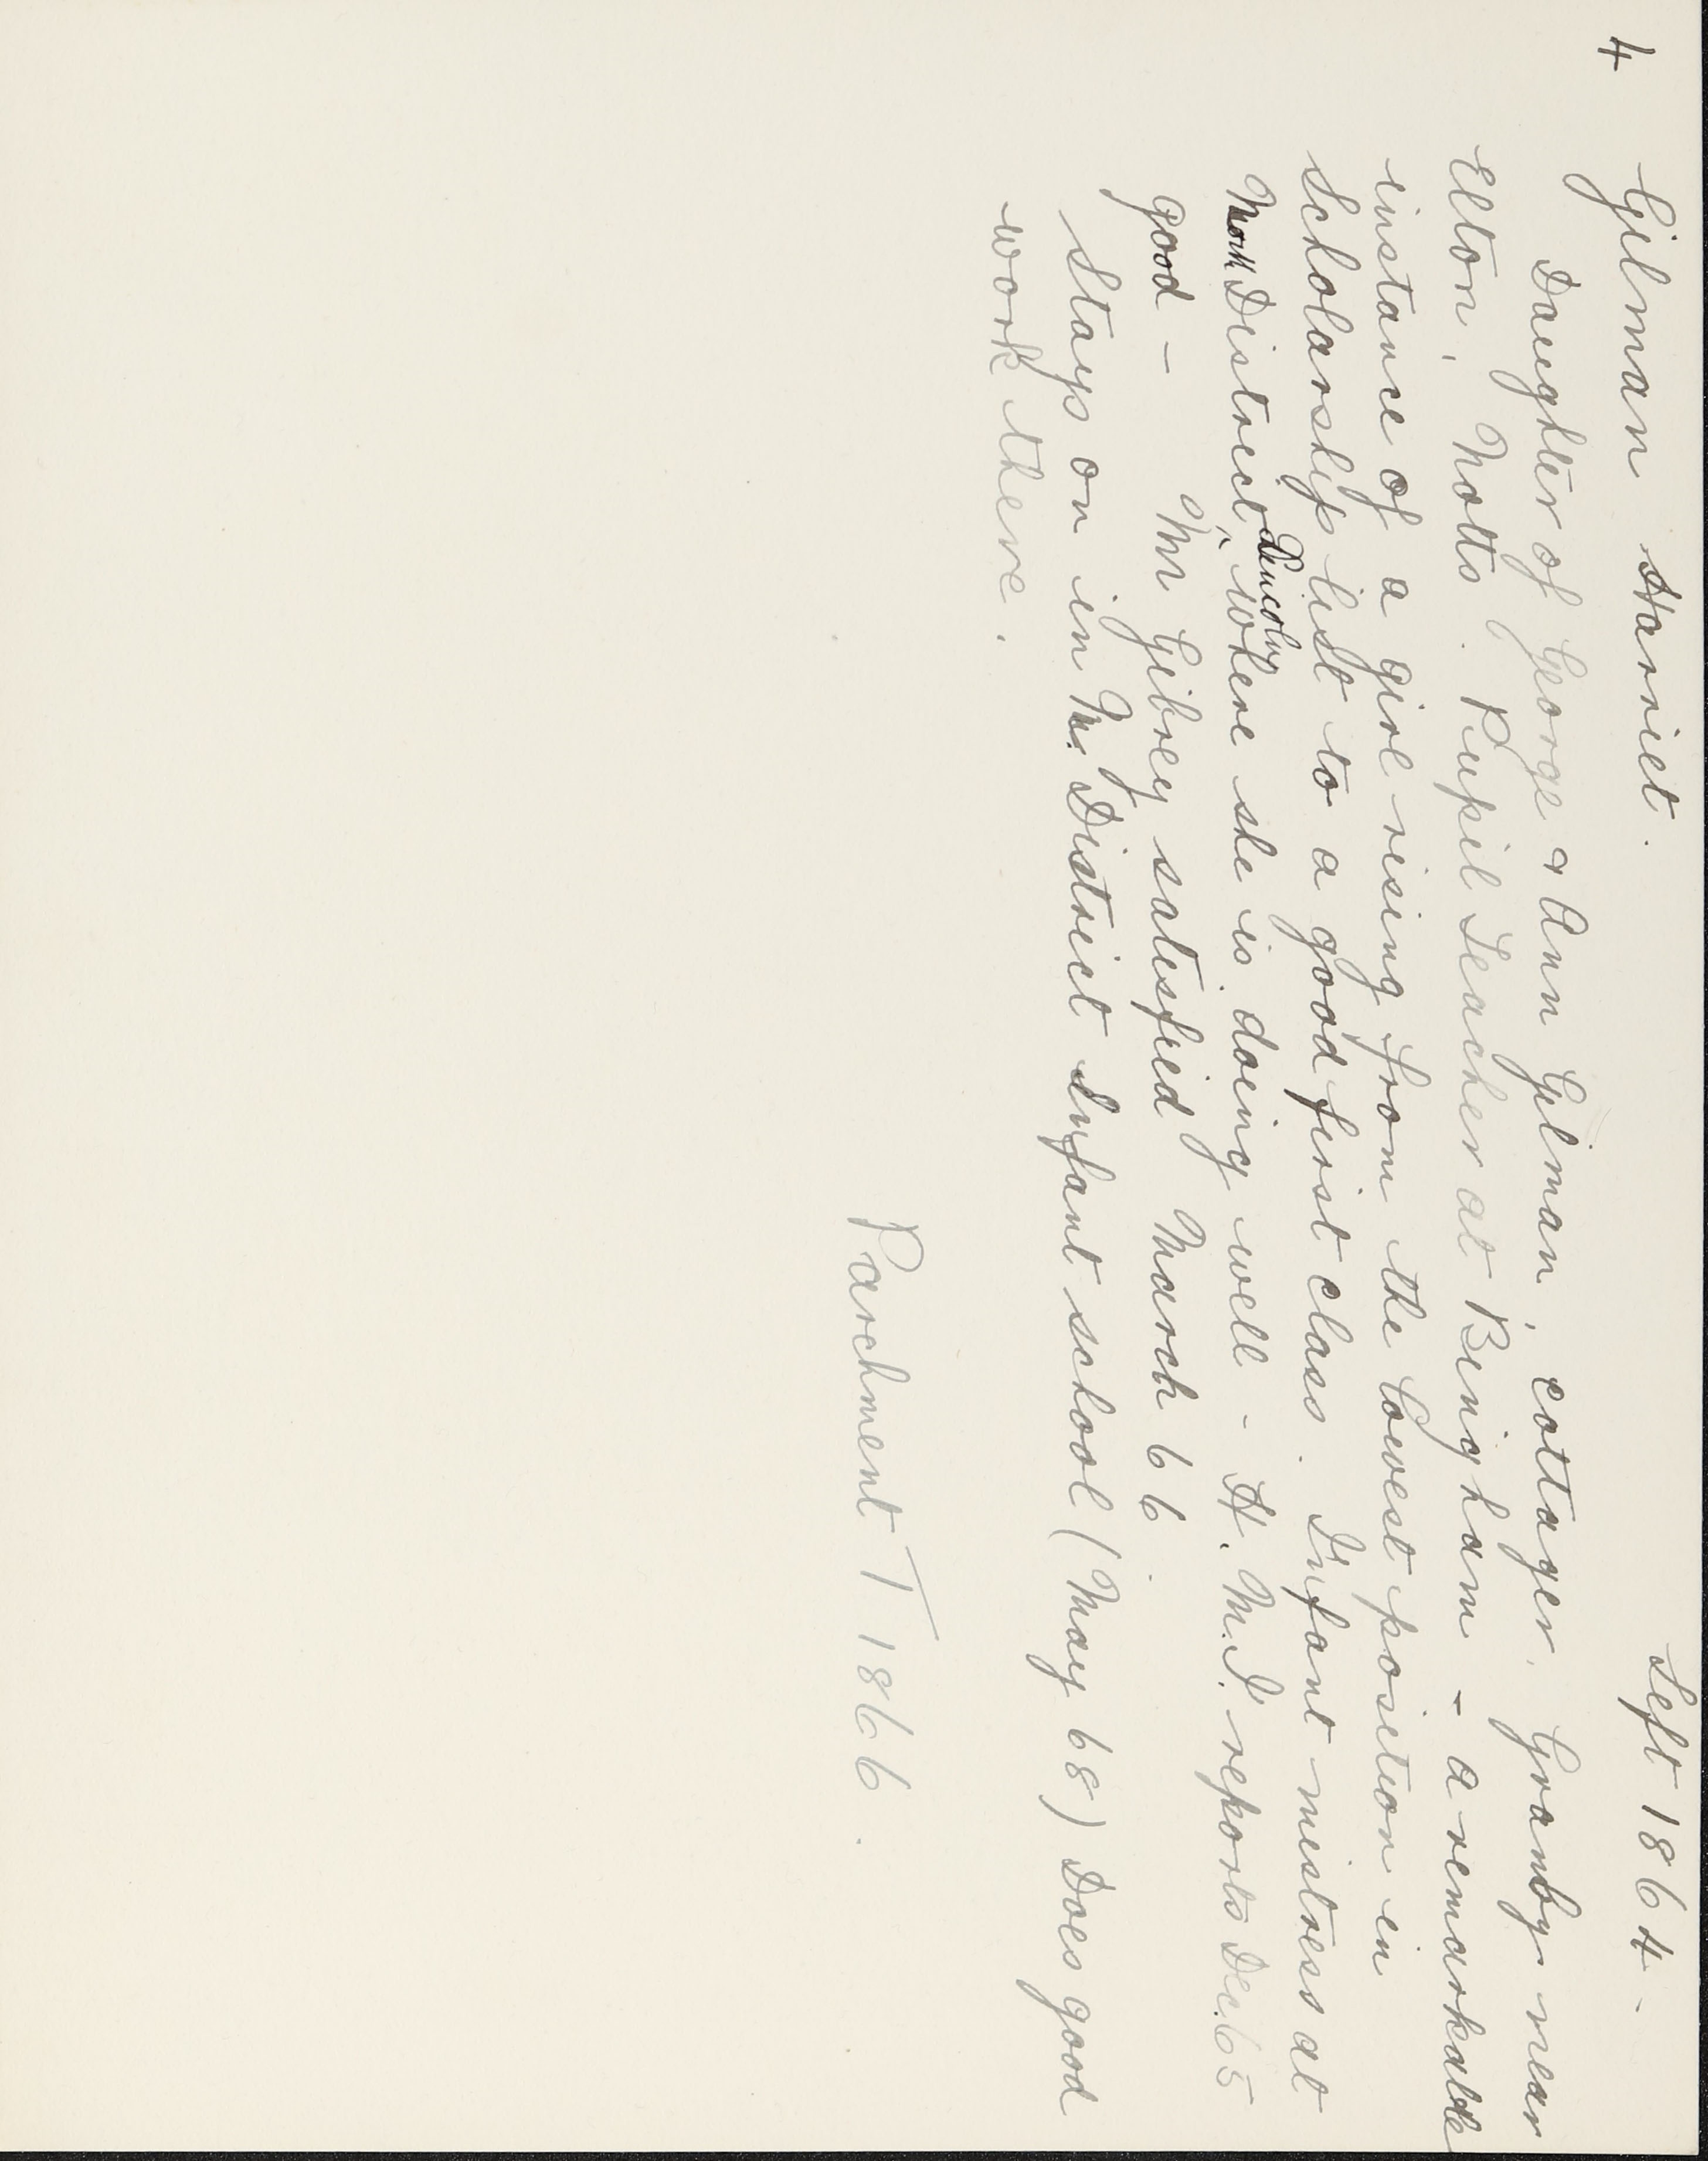 4 Gilman Harriet. Left 1864 -
Daughter of George & Ann Gilman, cottager. Granby near
Elton, Notts. Pupil Teacher at Bingham - a remarkable
instance of a girl rising from the lowest position in
Scholarship list to a good first class. Infant mistress at
North District, ^Lincoln where she is doing well - H.M.I. reports Dec. 65
good - Mr Gibney satisfied March 66.
Stays on in N. District Infant school (May 68) Does good
work there.
Parchment T 1866.